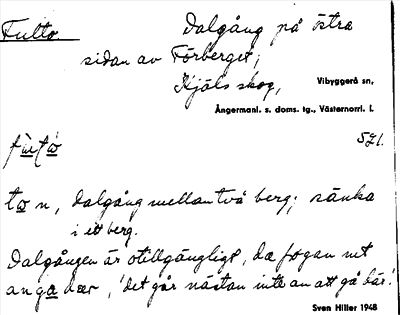 Fulto. Dalgång på östra
sidan av Förberget,
Kjäls skog, Vibyggerå sn,
Ångermanl. s. doms. tg., Västernorrl. l.
521.
n, dalgång mellan två berg; sänka
i ett berg.
Dalgången är otillgänglig,
'det går nästan inte an att gå där'.
Sven Hiller 1948